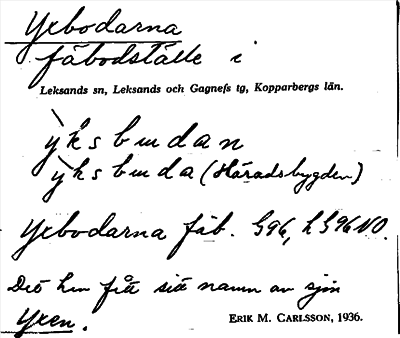 Yxbodarna
fäbodställe i
Leksands sn, Leksands och Gagnefs tg, Kopparbergs län.
ỳk̊sbudan
ỳksbuda (Häradsbygden)
Yxbodarna fäb. G96, h G96NO.
Det har fått sitt namn av sjön
Yxen.
ERIK M. CARLSSON, 1936.